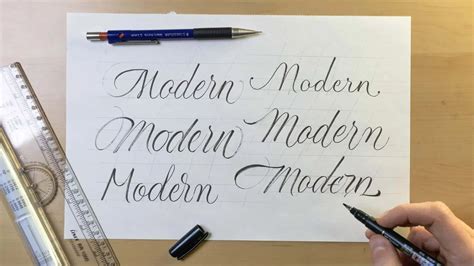 Modern Modern
Modern Modern
Modern Modern